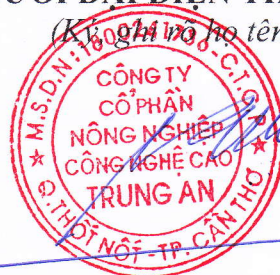 (Ký, ghi rõ họ tên
M.S.D.N:1800241736-C.T.C.P
CÔNG TY
CỔ PHẦN
NÔNG NGHIỆP
CÔNG NGHỆ CAO
TRUNG AN
Q.THỐT NỐT-TP. CẦN THƠ